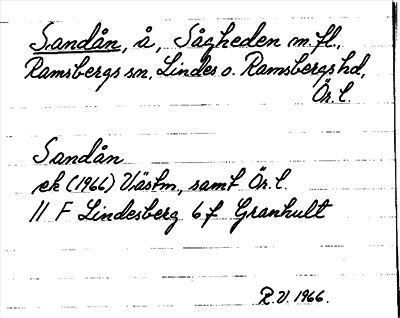 Sandån, å, Sågheden m.fl.,
Ramsbergs sn, Lindes o. Ramsbergs hd,
Ör. l.
Sandån
ek (1966) Västm., samt Ör. l.
11 F Lindesberg 6 f Granhult
R.V. 1966.